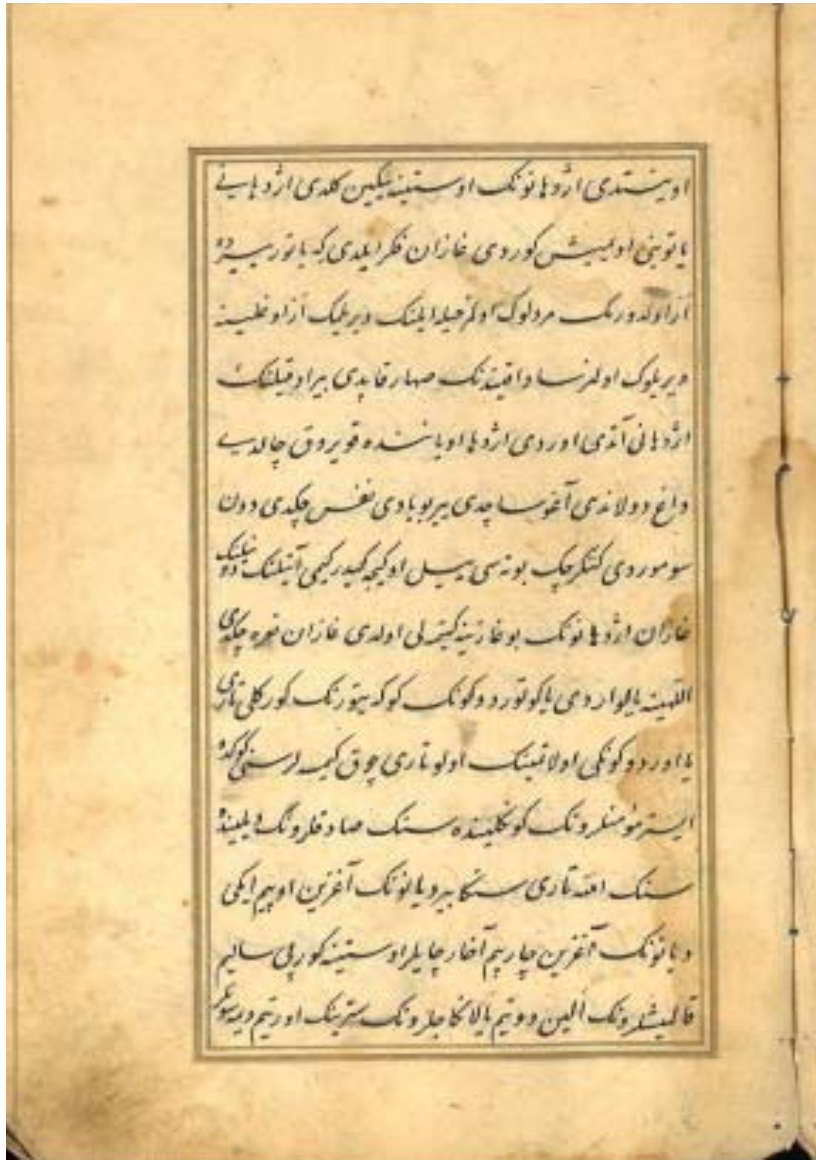 اویشتدی اژدهانونک اوستینه نیکین کلدی اژدهایی
یاتوبنی اولمیش کوردی غازان فکر ایلدی که یاتور یرده
آز اولدورنک مردلوک اولمز حیله ایلنک دیریلیک آز اوغلینه
دیریلوک اولمز ساداقیندنک صهار قاپدی بیر اوقیلنک
اژدهانی آتدی اوردی اژدها اویاننده قویروق چالدی
داغ دولاندی آغو ساچدی بیر بویادی نفس چکدی دون
سوموردی کنکرچک بوته سی ییل اوکیجه کیدر کیمی آتیلنک
غازان اژدهانونک بوغازینه کیتملی اولدی غازان نعره چکدی
اللهینه یالواردی یا کوتوردوکونک کوکه یتورنک کورکلی تاری
یا اوردوکونکی اولاتینک اولو تاری چوق کیمسه لر سنی کوکده
ایستر مؤمنلرونک کونکلینده سنک صادقلرونک دیلینده
سنک الله تاری سنکا بیر دیانونک آغزین اوپیم ایکی
دیانونک آغزین چارپم آخار چایلر اوستینه کورپی سالیم
قالمیشلرونک الین دوتیم یالانکاجلرونک سترینک اورتیم